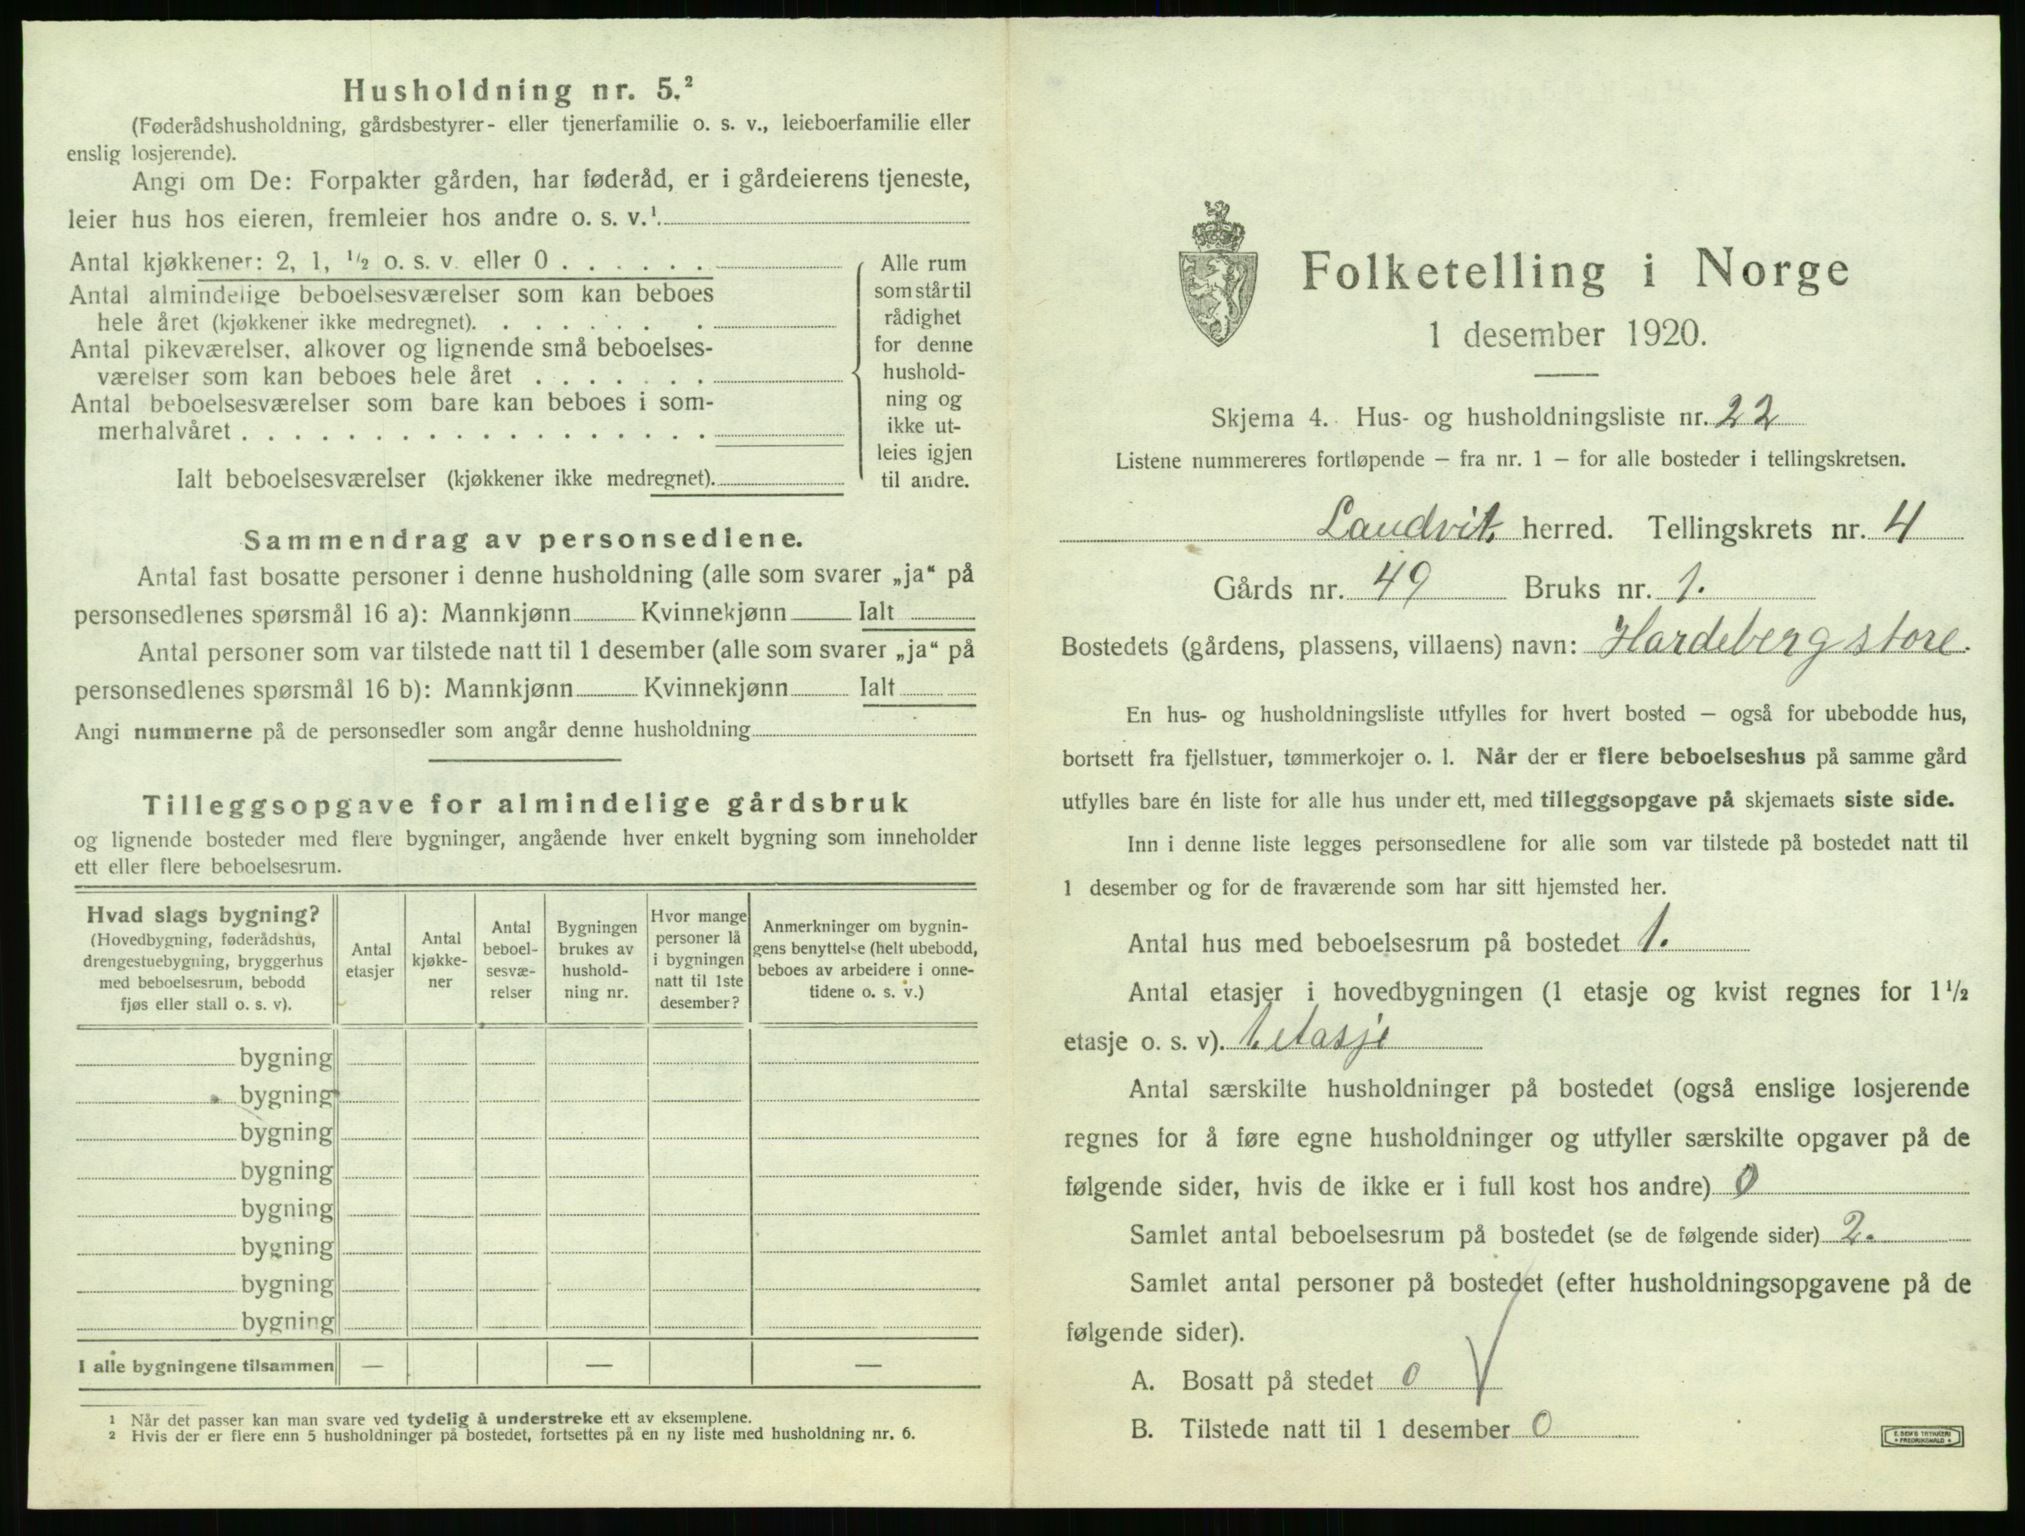 Husholdning nr. 5.²
(Føderådshusholdning, gårdsbestyrer- eller tjenerfamilie o. s. v., leieboerfamilie eller
enslig losjerende).
Angi om De: Forpakter gården, har føderåd, er i gårdeierens tjeneste,
leier hus hos eieren, fremleier hos andre o. s. v.¹
Antal kjøkkener: 2, 1, ½ o. s. v. eller 0 . . . . . .
Antal almindelige beboelsesværelser som kan beboes
hele året (kjøkkener ikke medregnet). . . . . . . .
Antal pikeværelser, alkover og lignende små beboelses-
værelser som kan beboes hele året . . . . . . .
Antal beboelsesværelser som bare kan beboes i som-
merhalvåret . . . . . . . . . . . . . . . . . .
Ialt beboelsesværelser (kjøkkener ikke medregnet).
Alle rum
som står til
rådighet
for denne
hushold-
ning og
ikke ut-
leies igjen
til andre.
Sammendrag av personsedlene.
Antal fast bosatte personer i denne husholdning (alle som svarer „ja“ på
personsedlenes spørsmål 16 a): Mannkjønn Kvinnekjønn Ialt
Antal personer som var tilstede natt til 1 desember (alle som svarer „ja“ på
personsedlenes spørsmål 16 b): Mannkjønn Kvinnekjønn Ialt
Angi nummerne på de personsedler som angår denne husholdning
Tilleggsopgave for almindelige gårdsbruk
og lignende bosteder med flere bygninger, angående hver enkelt bygning som inneholder
ett eller flere beboelsesrum.
Hvad slags bygning?
(Hovedbygning, føderådshus,
drengestuebygning, bryggerhus
med beboelsesrum, bebodd
fjøs eller stall o. s. v).
Antal
etasjer
Antal
kjøkke-
ner
Antal
beboel-
sesvæ-
relser
Bygningen
brukes av
hushold-
ning nr.
Hvor mange
personer lå
i bygningen
natt til 1ste
desember?
Anmerkninger om bygnin-
gens benyttelse (helt ubebodd,
beboes av arbeidere i onne-
tidene o. s. v.)
bygning
bygning
bygning
bygning
bygning
bygning
bygning
bygning
I alle bygningene tilsammen — — —
1 Når det passer kan man svare ved tydelig å understreke ett av eksemplene.
2 Hvis der er flere enn 5 husholdninger på bostedet, fortsettes på en ny liste med husholdning nr. 6.
Folketelling i Norge
1 desember 1920.
Skjema 4. Hus- og husholdningsliste nr. 22
Listene nummereres fortløpende – fra nr. 1 – for alle bosteder i tellingskretsen.
Landvik herred. Tellingskrets nr. 4
Gårds nr. 49 Bruks nr. 1.
Bostedets (gårdens, plassens, villaens) navn: Hardeberg store.
En hus- og husholdningsliste utfylles for hvert bosted – også for ubebodde hus,
bortsett fra fjellstuer, tømmerkojer o. l. Når der er flere beboelseshus på samme gård
utfylles bare én liste for alle hus under ett, med tilleggsopgave på skjemaets siste side.
Inn i denne liste legges personsedlene for alle som var tilstede på bostedet natt til
1 desember og for de fraværende som har sitt hjemsted her.
Antal hus med beboelsesrum på bostedet 1.
Antal etasjer i hovedbygningen (1 etasje og kvist regnes for 1½
etasje o. s. v). 1 etasje
Antal særskilte husholdninger på bostedet (også enslige losjerende
regnes for å føre egne husholdninger og utfyller særskilte opgaver på de
følgende sider, hvis de ikke er i full kost hos andre) 0
Samlet antal beboelsesrum på bostedet (se de følgende sider) 2.
Samlet antal personer på bostedet (efter husholdningsopgavene på de
følgende sider).
A. Bosatt på stedet 0
B. Tilstede natt til 1 desember 0
E. SEM'S TRYKKERI
FREDRIKSHALD